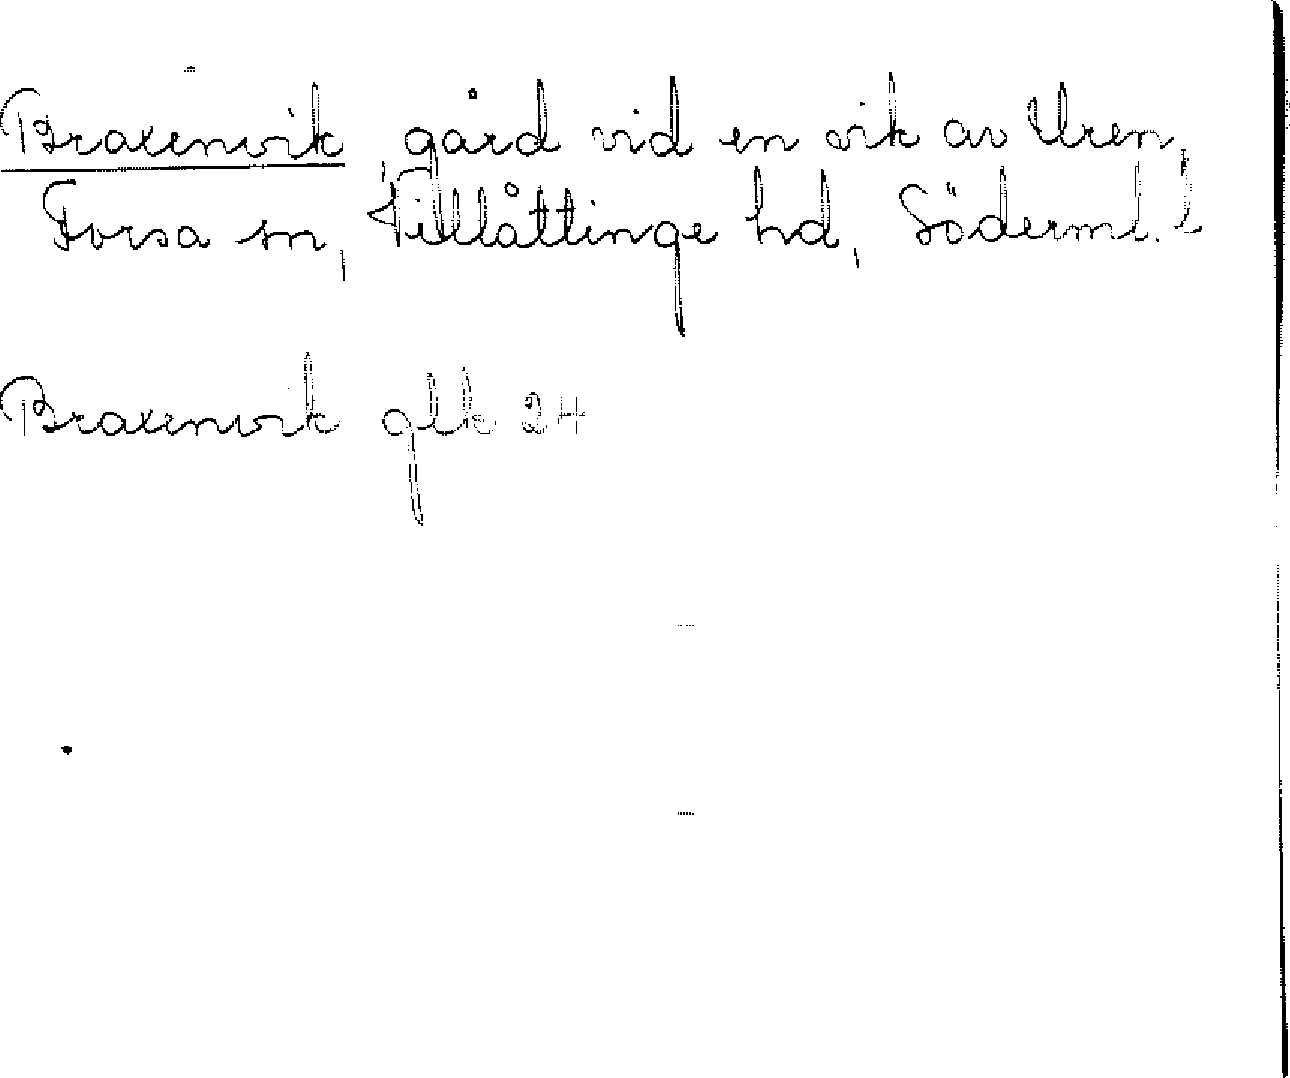 Braxenvik, gård vid en vik av Uren,
Forsa sn, Villåttinge hd, Söderml. l
Braxenvik glk 24